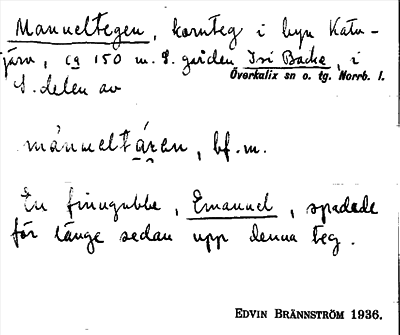 Manueltegen, kornteg i byn Katv-
järv, ca 150 m. S. gården Isi Backe, i
Överkalix sn o. tg. Norrb. l.
S. delen av
månneltären, bf. m.
En finngubbe, Emanuel, spadade
för länge sedan upp denna teg.
EDVIN BRÄNNSTRÖM 1936.